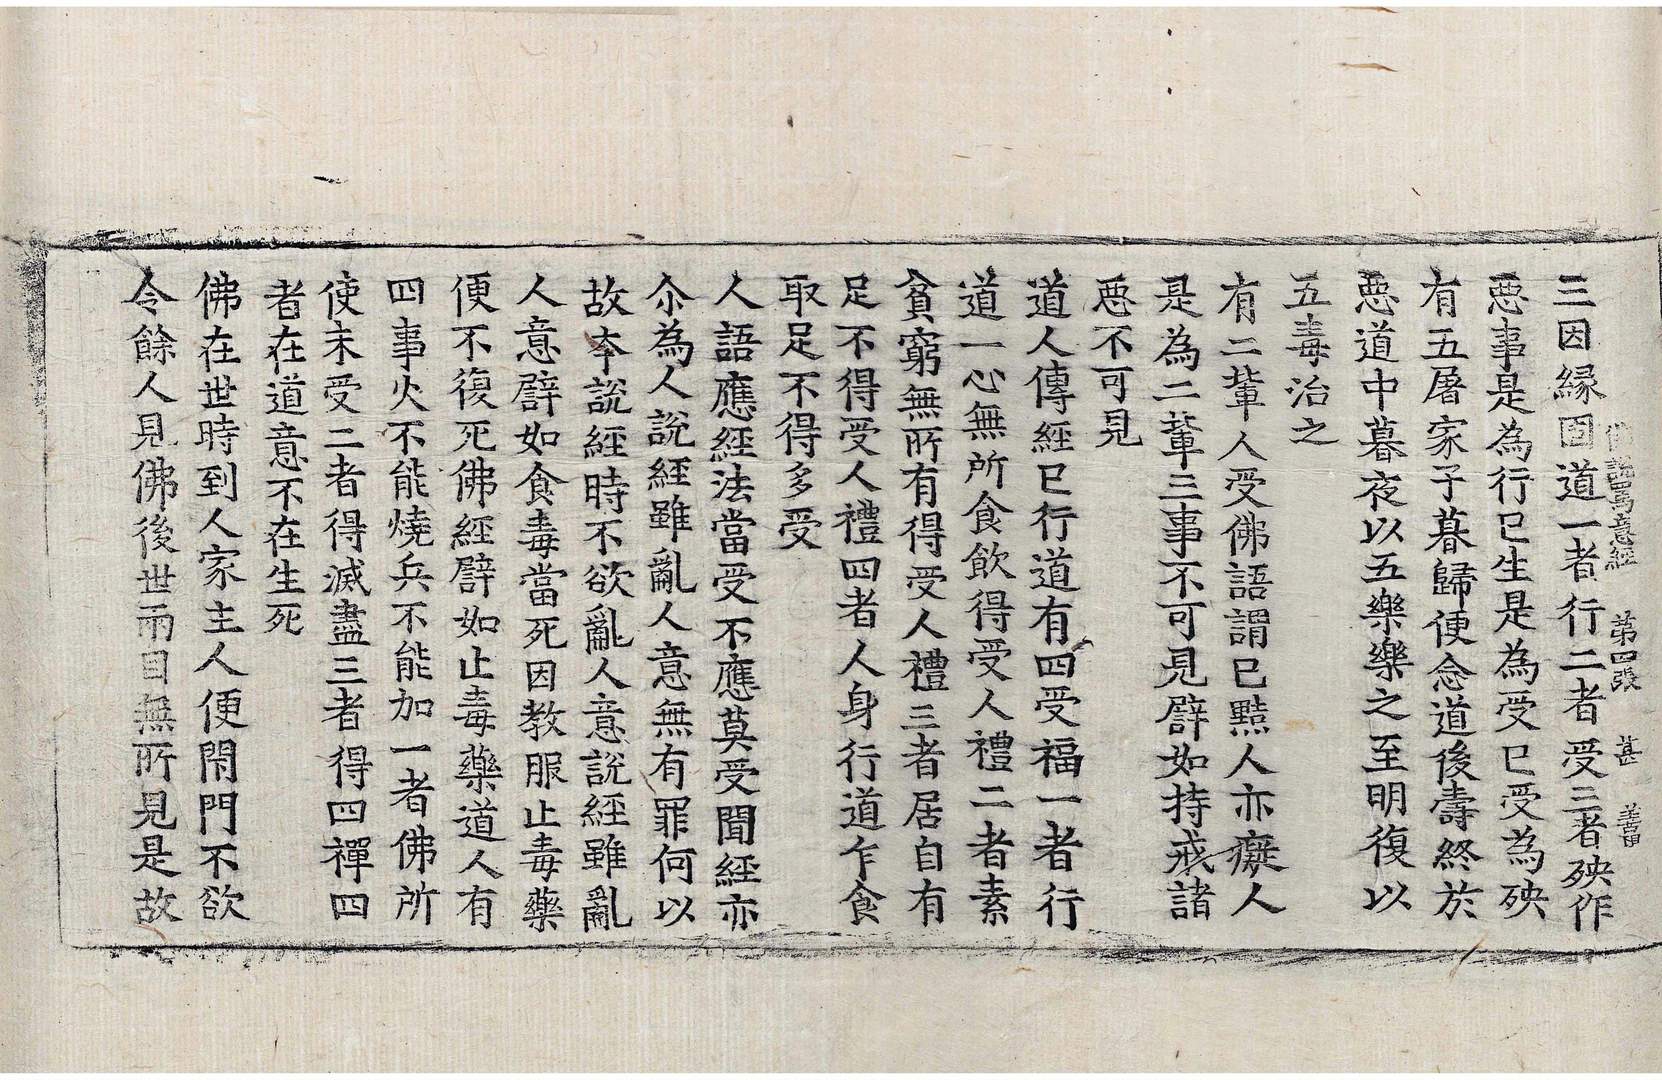 佛說罵意經 第四張 甚
三因緣因道一者行二者受三者殃作
惡事是為行已生是為受已受為殃
有五屠家子暮歸便念道後壽終於
惡道中暮夜以五樂樂之至明復以
五毒治之
有二輩人受佛語謂已黠人亦癡人
是為二輩三事不可見譬如持戒諸
惡不可見
道人傳經已行道有四受福一者行
道一心無所食飲得受人禮二者素
貧窮無所有得受人禮三者居自有
足不得受人禮四者人身行道乍食
取足不得多受
人語應經法當受不應莫受聞經亦
尒為人說經雖亂人意無有罪何以
故夲說經時不欲亂人意說經雖亂
人意譬如食毒當死因教服止毒藥
便不復死佛經譬如止毒藥道人有
四事火不能燒兵不能加一者佛所
使未受二者得滅盡三者得四禪四
者在道意不在生死
佛在世時到人家主人便閇門不欲
令餘人見佛後世兩目無所見是故